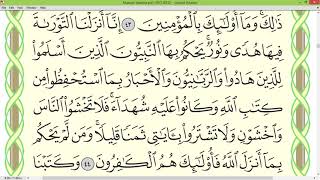 ذَٰلِكَ وَمَآ أُو۟لَـٰٓئِكَ بِٱلْمُؤْمِنِينَ ٤٣ إِنَّآ أَنزَلْنَا ٱلتَّوْرَىٰةَ
فِيهَا هُدًى وَنُورٌ يَحْكُمُ بِهَا ٱلنَّبِيُّونَ ٱلَّذِينَ أَسْلَمُوا۟
لِلَّذِينَ هَادُوا۟ وَٱلرَّبَّـٰنِيُّونَ وَٱلْأَحْبَارُ بِمَا ٱسْتُحْفِظُوا۟ مِن
كِتَـٰبِ ٱللَّهِ وَكَانُوا۟ عَلَيْهِ شُهَدَآءَ فَلَا تَخْشَوُا۟ ٱلنَّاسَ
وَٱخْشَوْنِ وَلَا تَشْتَرُوا۟ بِـَٔايَـٰتِى ثَمَنًا قَلِيلًا وَمَن لَّمْ يَحْكُم
بِمَآ أَنزَلَ ٱللَّهُ فَأُو۟لَـٰٓئِكَ هُمُ ٱلْكَـٰفِرُونَ ٤٤ وَكَتَبْنَا